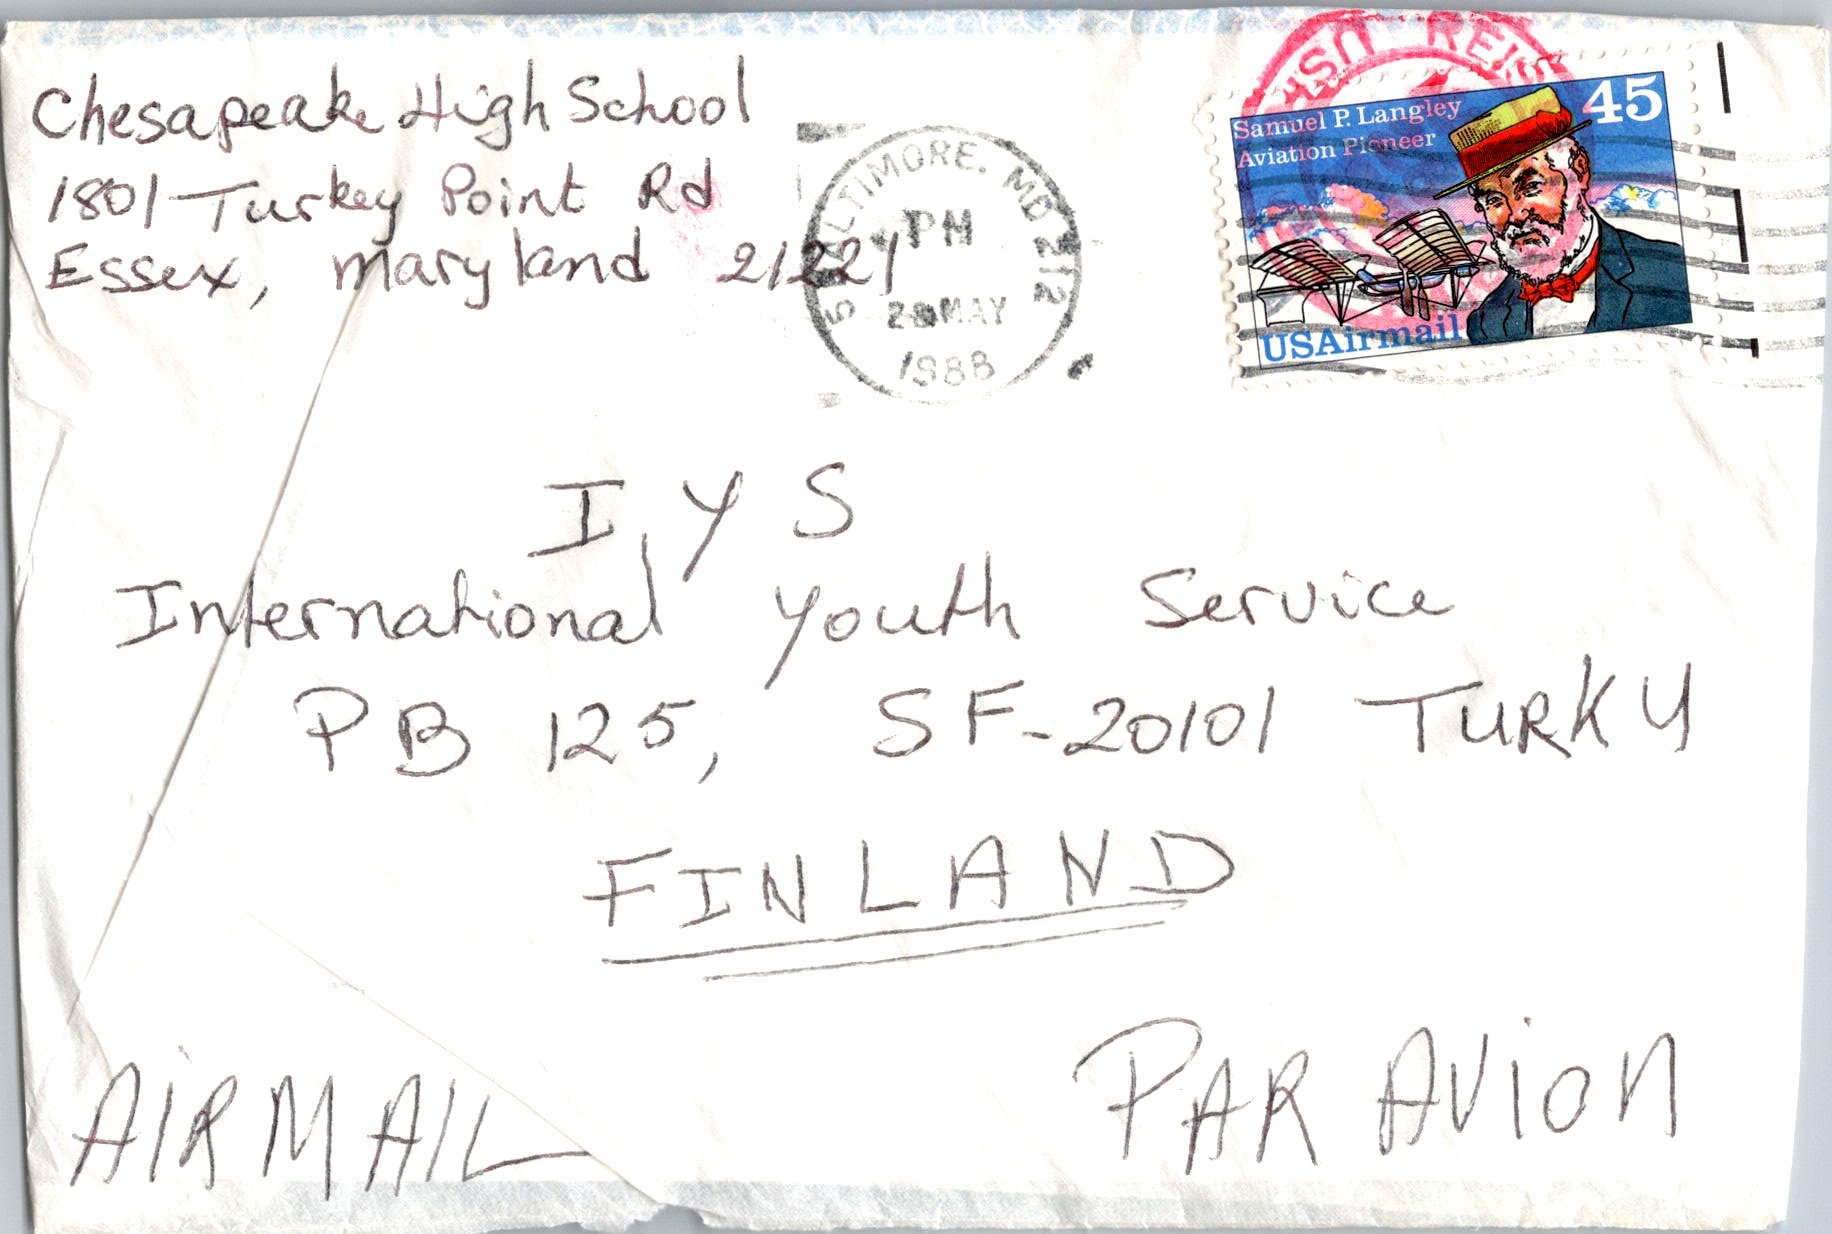 Chesapeake High School
1801 Turkey Point Rd
Essex, Maryland 21221
BALTIMORE, MD 212
PM
MAY
1988
45
Samuel P. Langley
Aviation Pioneer
USAirmail
I Y S
International Youth Service
PB 125, SF-20101 TURKU
FINLAND
AIRMAIL
PAR AVION